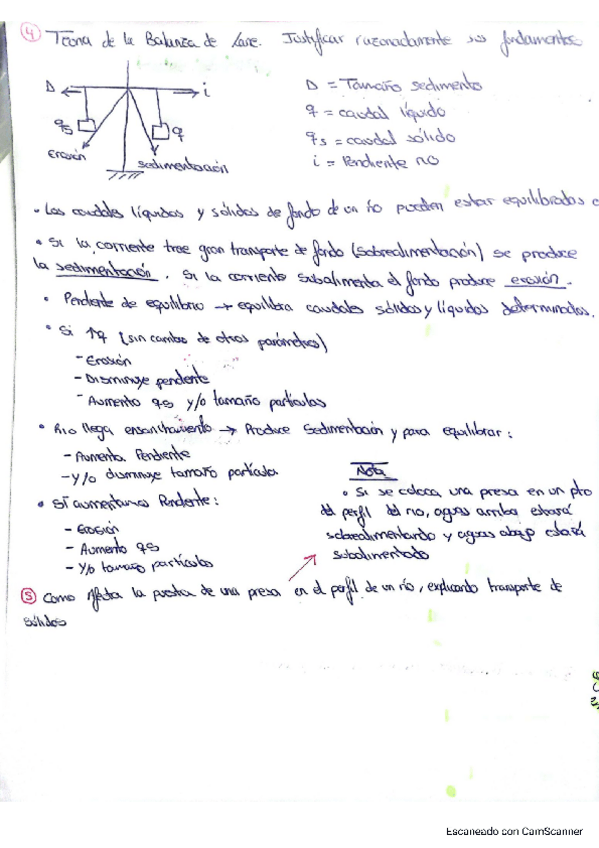 4 Teoria de la Balanza de Lane. Justificar razonadamente sus fundamentos
D i
qs q
Erosión Sedimentación
D = Tamaño sedimento
q = caudal líquido
qs = caudal sólido
i = Pendiente río
• Los caudales líquidos y sólidos de fondo de un río pueden estar equilibrados o
• Si la corriente trae gran transporte de fondo (sobrealimentación) se produce
la sedimentación. Si la corriente subalimenta el fondo produce erosión.
• Pendiente de equilibrio → equilibra caudales sólidos y líquidos determinados.
• Si ↑q (sin cambio de otros parámetros)
- Erosión
- Disminuye pendiente
- Aumento qs y/o tamaño partículas
• Rio llega ensanchamiento → Produce Sedimentación y para equilibrar:
- Aumenta Pendiente
- y/o disminuye tamaño partícula
• Si aumentamos Pendiente:
- Erosión
- Aumento qs
- y/o tamaño partículas
Nota
• Si se coloca una presa en un pto
del perfil del río, aguas arriba estará
sobrealimentando y aguas abajo estará
subalimentado
5 Como Afecta la puesta de una presa en el perfil de un río, explicando transporte de
sólidos
Escaneado con CamScanner